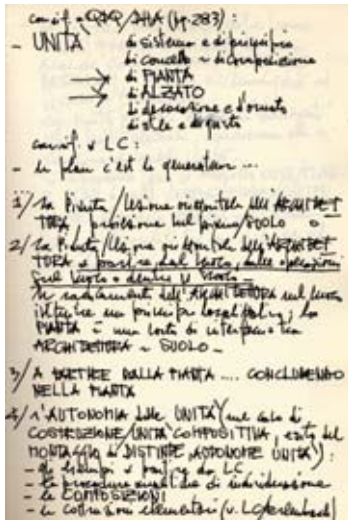 con rif. a QdQ/AHA (pg. 283):
- UNITÀ di sistema e di principio
di concetto ~ di composizione
di PIANTA
di ALZATO
di decorazione e d'ornato
di stile e di gusto
con rif. a LC:
- le plan c'est le generateur ...
1/ la Pianta / sezione orizzontale dell'ARCHITET
TURA, proiezione sul piano/SUOLO o
2/ la Pianta / sezione orizzontale dell'ARCHITET
TURA a partire dal suolo, dalle operazioni
sul suolo o dentro il suolo -
radicamento dell'ARCHITETTURA nel suolo
istituire un principio ; la
PIANTA è una sorta di interfaccia tra
ARCHITETTURA ~ SUOLO -
3/ A PARTIRE DALLA PIANTA .... CONCLUDENDO
NELLA PIANTA
4/ L'AUTONOMIA delle UNITÀ (nel caso di
COSTRUZIONE/UNITÀ COMPOSITIVA, esito del
MONTAGGIO di DISTINTE, AUTONOME UNITÀ):
- gli esempi a partire da LC
- le procedure di individuazione
- le COMPOSIZIONI
- le costruzioni elementari (v. LC/